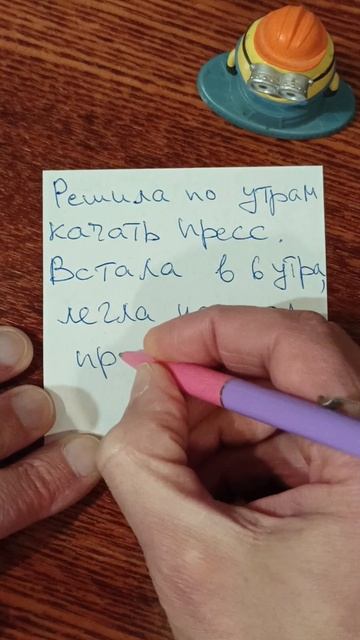 Решила по утрам
качать пресс.
Встала в 6 утра,
легла
пр